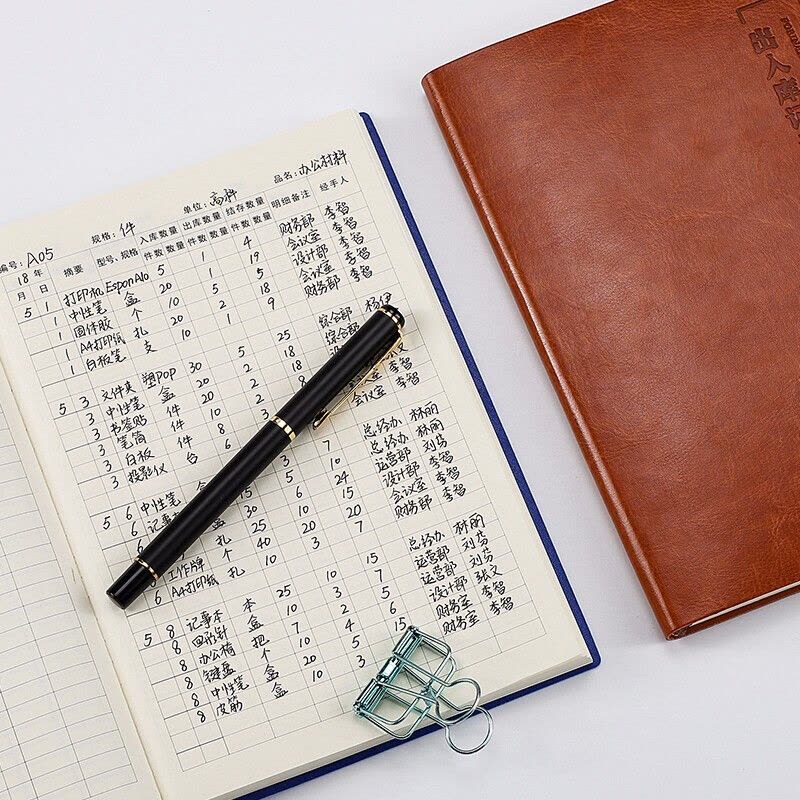 品名：办公材料
单位：高科
规格：件
编号：A05
18 年 摘要 型号、规格 入库数量 出库数量 结存数量 明细备注 经手人
月 日 件数 数量 件数 数量 件数 数量
5 1 打印机 EsponAlo 5 1 4 财务部 李智
1 中性笔 盒 20 1 19 会议室 李智
1 固体胶 个 10 5 5 设计部 李智
1 A4打印纸 扎 20 2 18 会议室 李智
1 白板笔 支 10 1 9 财务部 李智
5 3 文件夹 塑pop 30 5 25 综合部 杨伊
3 中性笔 盒 20 2 18 综合部
3 书签贴 件 20 2 18
3 笔筒 件 10 2 8
3 白板 件 8 会议室 李智
3 投影仪 台 6 3
5 6 中性笔 盒 3 7 总经办 林丽
6 记事本 15 总经办 林丽
30 6 24 运营部 刘芬
25 10 15 设计部 李智
6 工作牌 个 40 20 20 会议室 李智
6 A4打印纸 扎 10 3 7 财务部 李智
5 8 记事本 本 25 10 15 总经办 林丽
8 回形针 盒 10 3 7 运营部 刘芬
8 办公椅 把 7 2 5 运营部 刘芬
8 键盘 个 10 4 6 设计部 张文
8 中性笔 盒 20 5 15 财务室 李智
8 皮筋 盒 10 3 财务室 李智
出入库